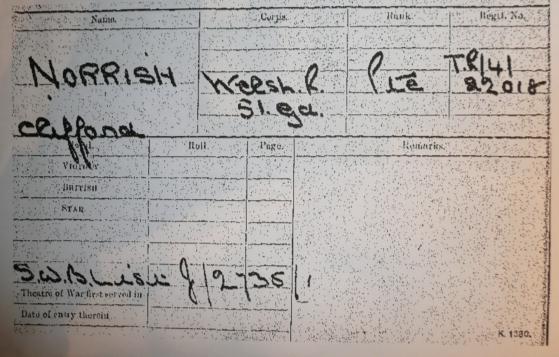 Name. Corps. Rank. Regtl. No.
NORRISH Welsh. R. Pte TR/4/
Clifford Sl. Gd. 22018
Medal. Roll. Page. Remarks.
VICTORY
BRITISH
STAR
S.W.B. List J/2735/1
Theatre of War first served in
Date of entry therein
K. 1380.